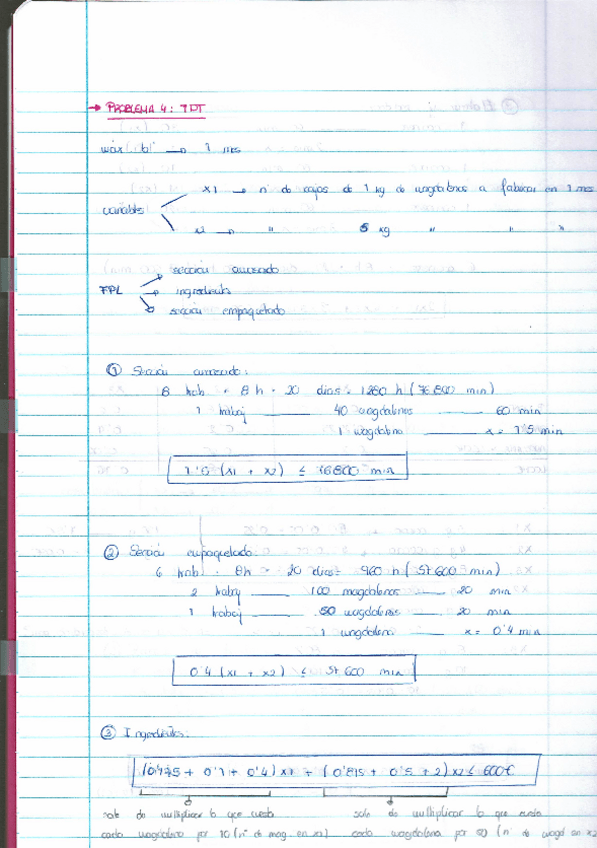 → PROBLEMA 4: TDT
max (b) → 1 mes
x1 → nº de cajas de 1 kg de magdalenas a fabricar en 1 mes
variables
x2 → " 5 kg " " "
sección amasado
FPL → ingredients
sección empaquetado
① Sección amasado:
8 trab · 8 h · 20 días = 1280 h (76.800 min)
1 trabaj — 40 magdalenas — 60 min
1 magdalena — x = 1'5 min
1'5 (x1 + x2) ≤ 76800 min
② Sección empaquetado:
6 trab · 8h · 20 días 960 h (57600 min)
2 trabaj — 100 magdalenas — 20 min
1 trabaj — 50 magdalenas — 20 min
1 magdalena — x = 0'4 min
0'4 (x1 + x2) ≤ 57600 min
③ Ingredientes:
(0'475 + 0'1 + 0'4) x1 + (0'815 + 0'5 + 2) x2 ≤ 600€
sale de multiplicar lo que cuesta sale de multiplicar lo que cuesta
cada magdalena por 10 (nº de mag. en x1) cada magdalena por 50 (nº de magd en x2